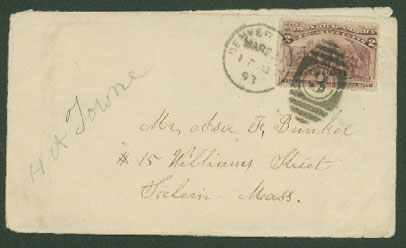 DENVER
MAR 2
93
2
2
H A Towne
Mr. Asa F. Bunkel
# 15 Williams Street
Salem Mass.